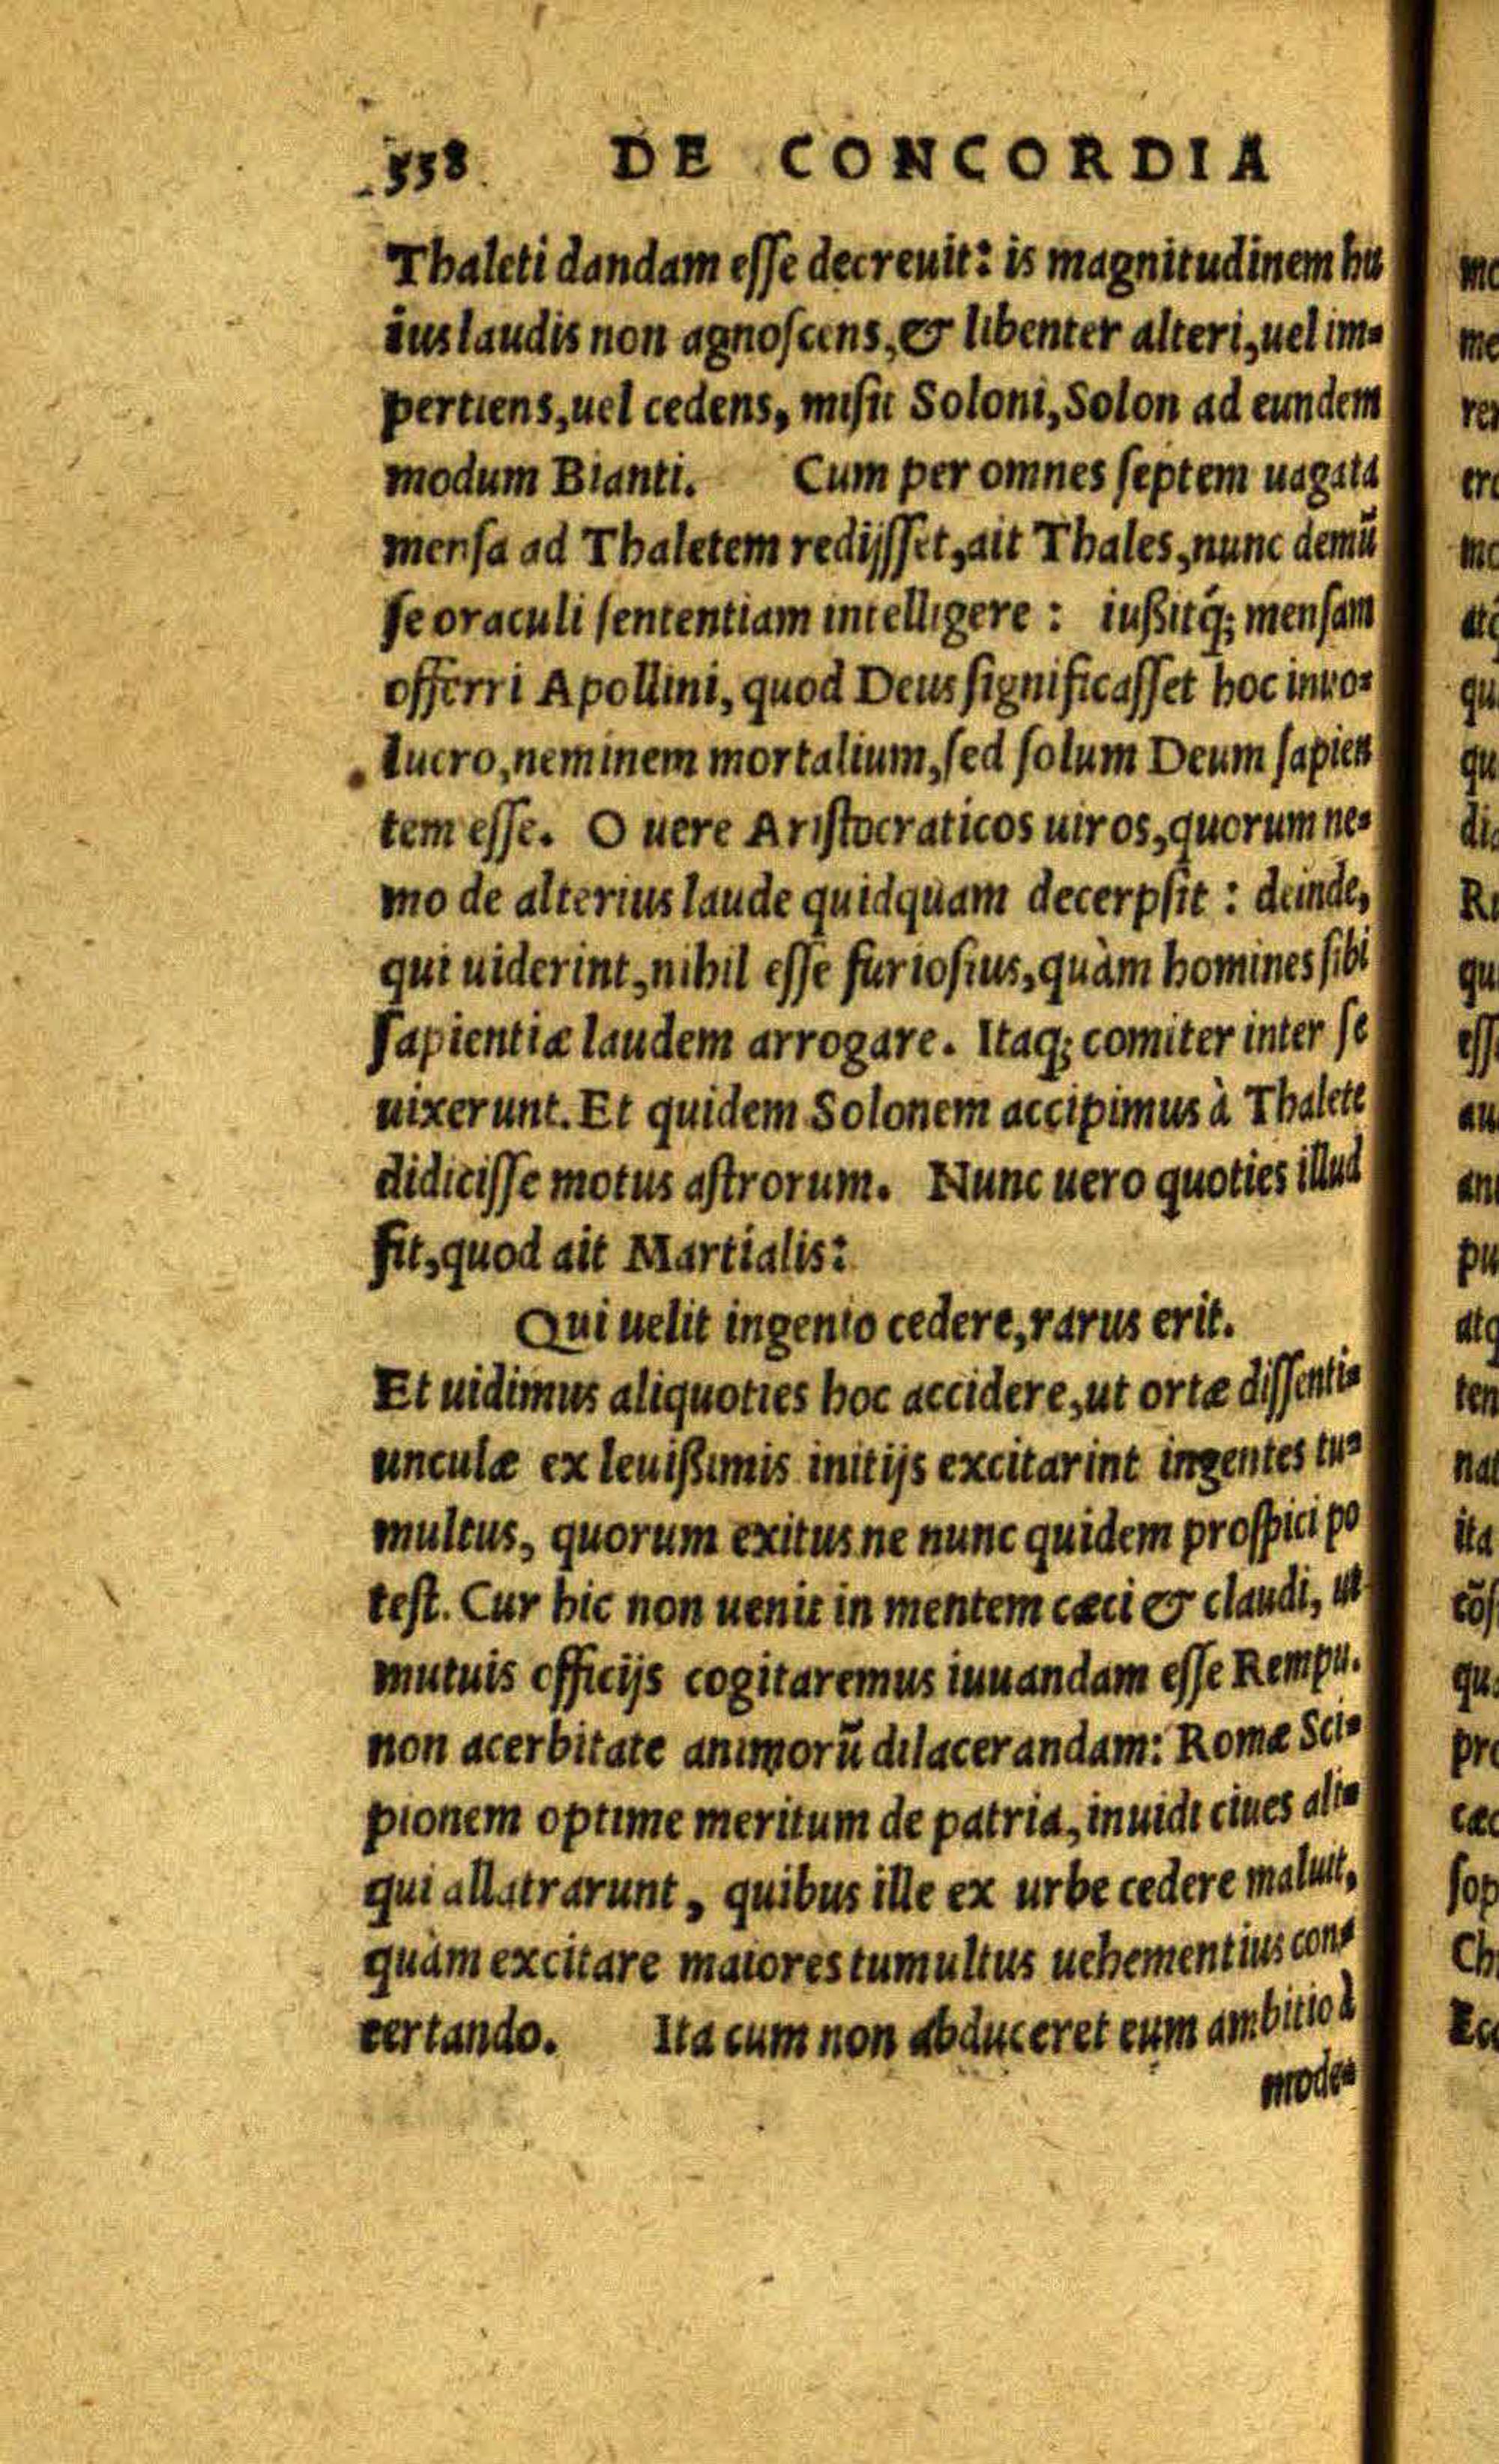 558 DE CONCORDIA
Thaleti dandam eſſe decreuit: is magnitudinem hu
ius laudis non agnoſcens, & libenter alteri, uel im-
pertiens, uel cedens, miſit Soloni, Solon ad eundem
modum Bianti. Cum per omnes ſeptem uagata
menſa ad Thaletem redijſſet, ait Thales, nunc demũ
ſe oraculi ſententiam intelligere: iußitq́; menſam
offerri Apollini, quod Deus ſignificaſſet hoc inuo-
lucro, neminem mortalium, ſed ſolum Deum ſapien
tem eſſe. O uere Ariſtocraticos uiros, quorum ne-
mo de alterius laude quidquam decerpſit: deinde,
qui uiderint, nihil eſſe furioſius, quàm homines ſibi
ſapientiæ laudem arrogare. Itaq; comiter inter ſe
uixerunt. Et quidem Solonem accipimus à Thalete
didiciſſe motus aſtrorum. Nunc uero quoties illud
fit, quod ait Martialis:
Qui uelit ingenio cedere, rarus erit.
Et uidimus aliquoties hoc accidere, ut ortæ diſſenti-
unculæ ex leuißimis initijs excitarint ingentes tu-
multus, quorum exitus ne nunc quidem proſpici po
teſt. Cur hic non uenit in mentem cæci & claudi, ut
mutuis officijs cogitaremus iuuandam eſſe Rempu.
non acerbitate animorũ dilacerandam: Romæ Sci-
pionem optime meritum de patria, inuidi ciues ali-
qui allatrarunt, quibus ille ex urbe cedere maluit,
quàm excitare maiores tumultus uehementius con-
certando. Ita cum non abduceret eum ambitio à
mode-